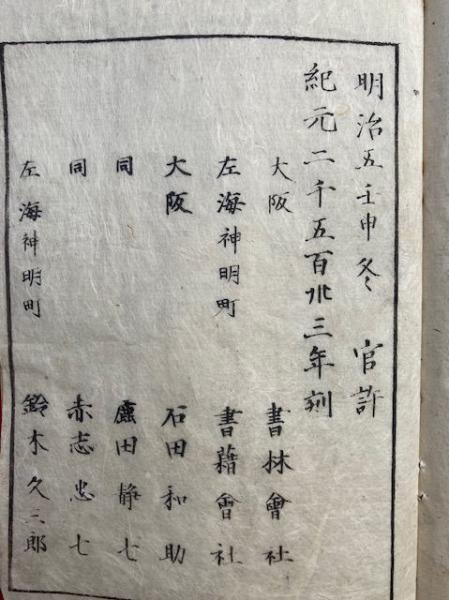 明治五壬申冬 官許
紀元二千五百卅三年刻
大阪 書林會社
左海神明町 書藉會社
大阪 石田和助
同 鹿田静七
同 赤志忠七
左海神明町 鈴木久三郎